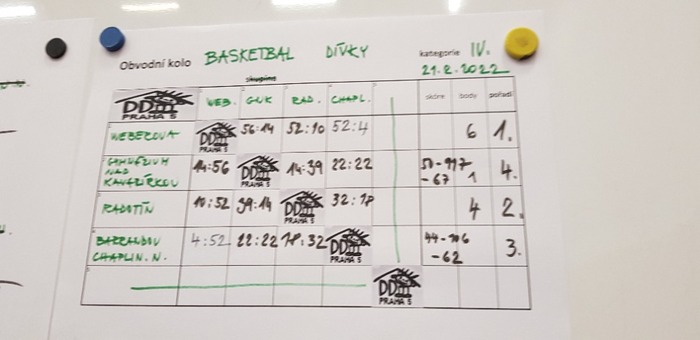 Obvodní kolo BASKETBAL DÍVKY kategorie IV.
skupina 21.2.2022
DDM PRAHA 5 WEB. GNK RAD. CHAPL. skóre body pořadí
WEBEROVA DDM PRAHA 5 56:14 52:10 52:4 6 1.
GYMNÁZIUM NAD KAVALÍRKOU 14:56 DDM PRAHA 5 14:39 22:22 50-117 -67 1 4.
RADOTÍN 10:52 39:14 DDM PRAHA 5 32:18 4 2.
BARRANDOV CHAPLIN. N. 4:52 22:22 18:32 DDM PRAHA 5 44-106 -62 3.
DDM PRAHA 5